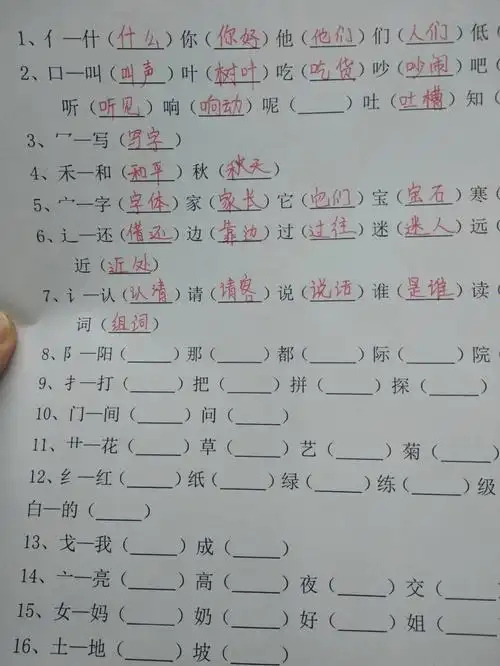 1、亻—什（什么）你（你好）他（他们）们（人们）低（
2、口—叫（叫声）叶（树叶）吃（吃货）吵（吵闹）吧（
听（听见）响（响动）呢（____）吐（吐槽）知（
3、冖—写（写字）
4、禾—和（和平）秋（秋天）
5、宀—字（字体）家（家长）它（它们）宝（宝石）寒（
6、辶—还（借还）边（靠边）过（过往）迷（迷人）远（
近（近处）
7、讠—认（认清）请（请客）说（说话）谁（是谁）读（
词（组词）
8、阝—阳（____）那（____）都（____）际（____）院（
9、扌—打（____）把（____）拼（____）探（____）
10、门—间（____）问（____）
11、艹—花（____）草（____）艺（____）菊（____
12、纟—红（____）纸（____）绿（____）练（____）级
白—的（____）
13、戈—我（____）成（____）
14、亠—亮（____）高（____）夜（____）交（____
15、女—妈（____）奶（____）好（____）姐（____
16、土—地（____）坡（____）